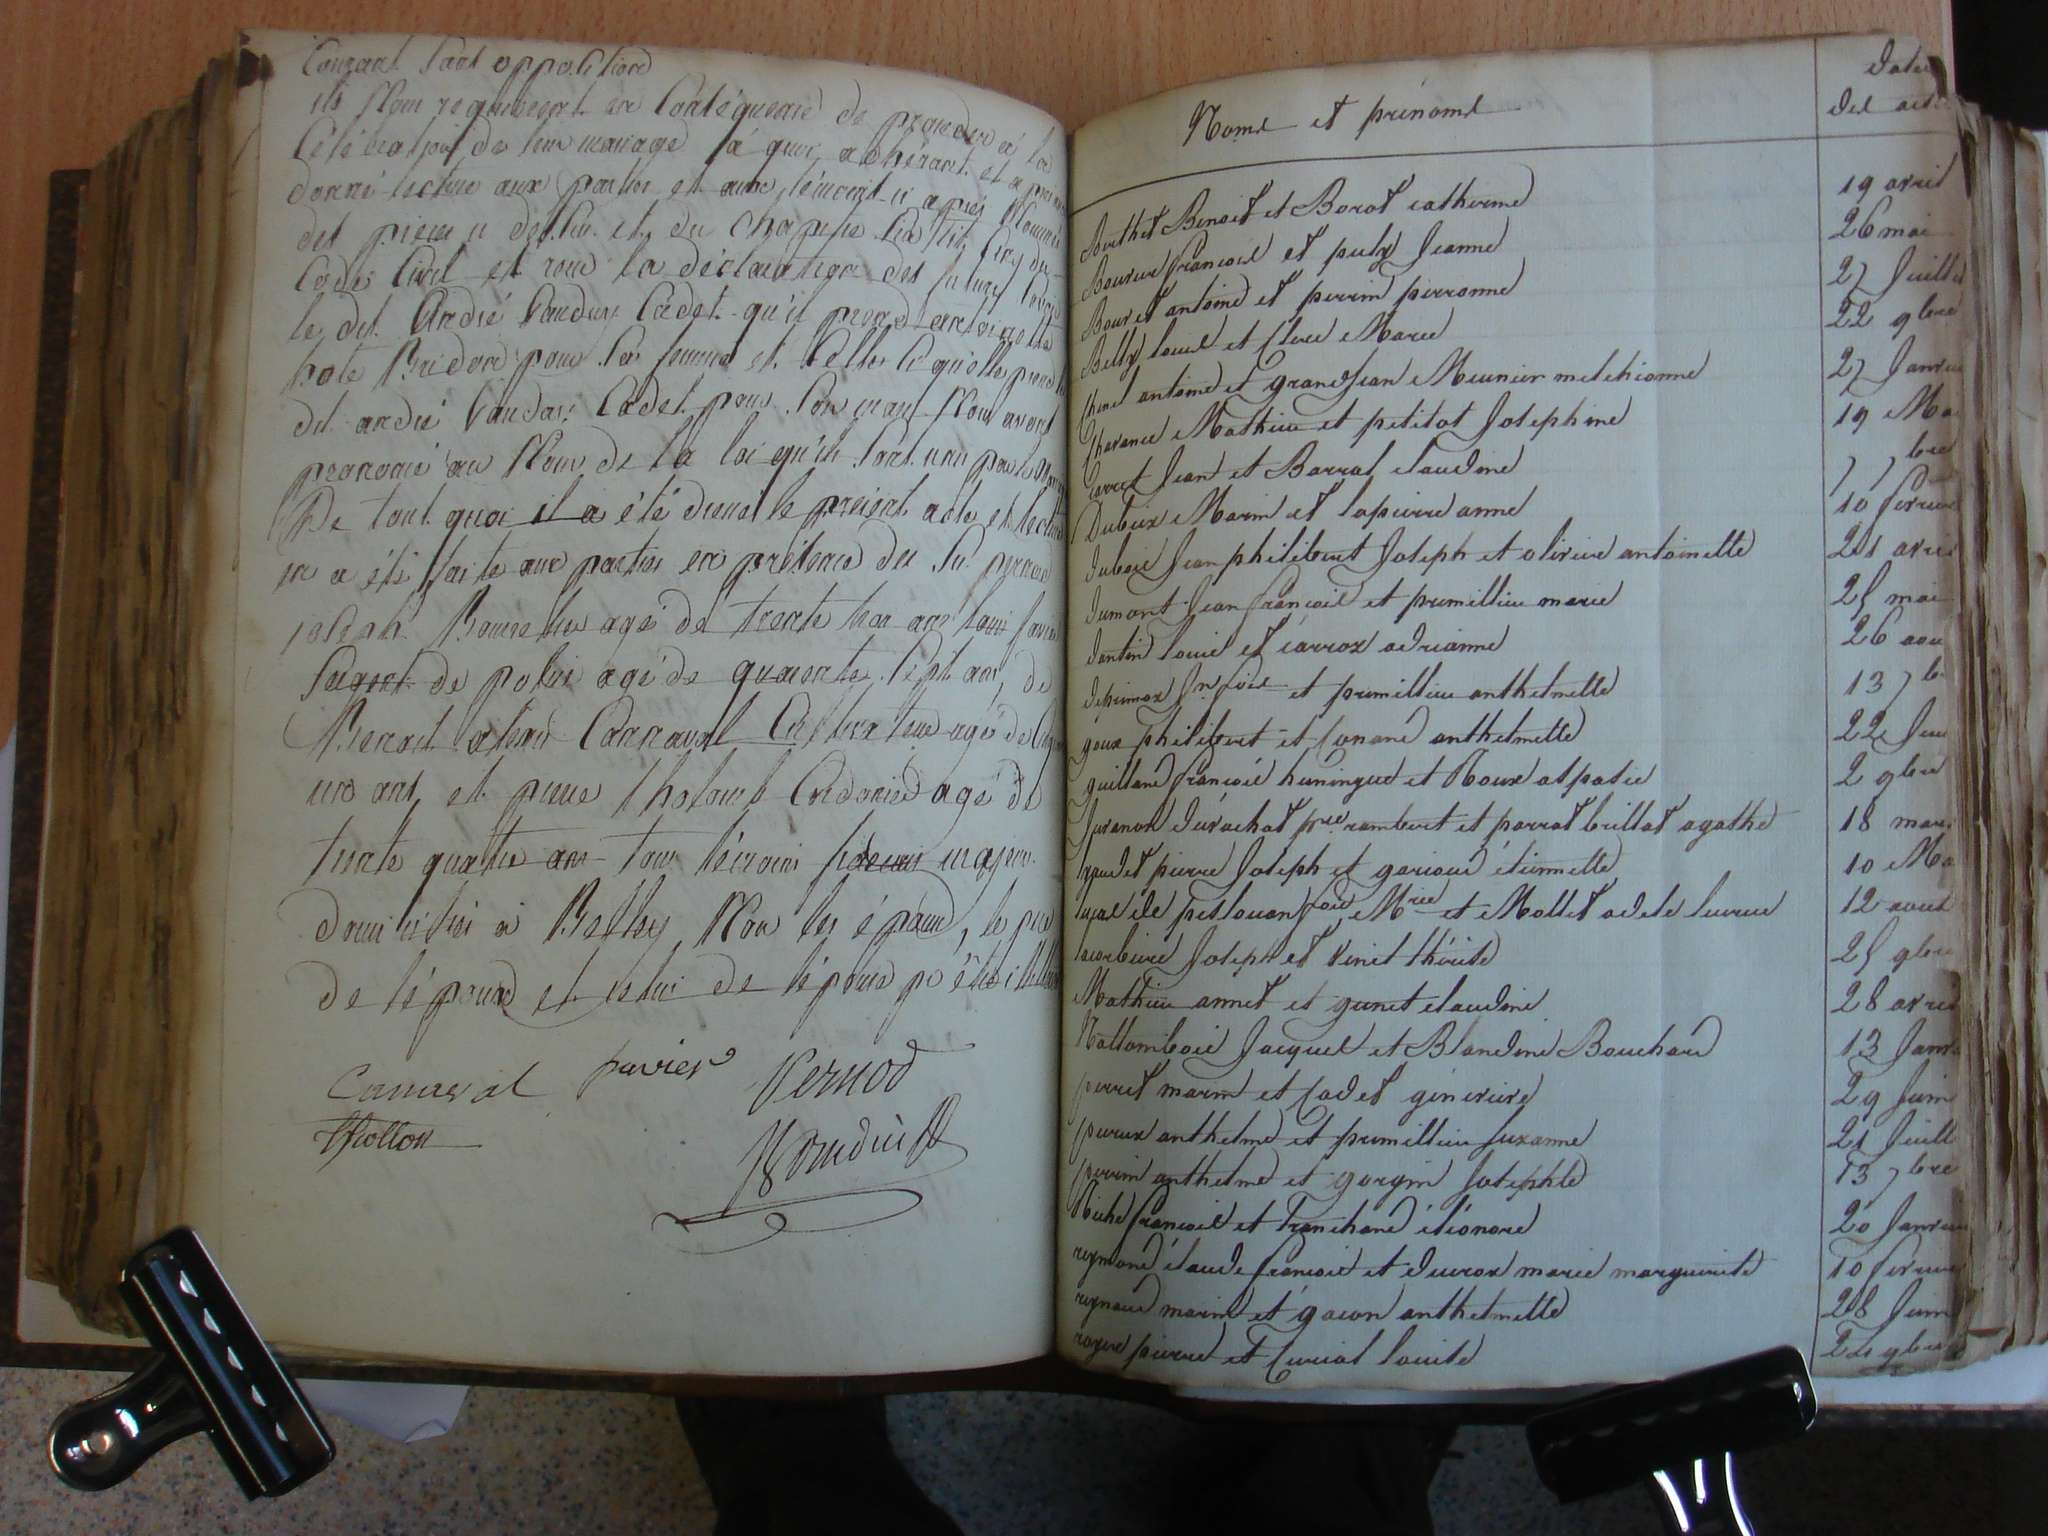 Courant sans opposition
ils nous requierent en Conséquence de proceder à la
Célébration de leur mariage à quoi adhérant et après avoir
donné lecture aux parties et aux témoins ci après Nommés
des pieces ci dessus et du Chapitre Six titre Cinq du
Code Civil et recu la déclaration des futurs
le dit André Caudury Cadet qu'il prend antoinette
Bridon pour sa femme et Celle ci qu'elle prend le
dit andré Cadet pour son mari Nous avons
prononcé au Nom de la loi qu'ils sont unis par le
De tout quoi il a été dressé le présent acte et lecture
en a été faite aux parties en présence des Srs pernod
joseph âgé de trente trois ans louis favier
Sergent de police agé de quarante sept ans, de
Benoit Carnaval Cultivateur agé de
un ans et pierre Cordonier agé de
trente quatre ans tous témoins majeurs
domiciliés à Belley Nous les époux, le père
de l'époux et celui de l'épouse pr être illettrés
Carnaval favier Vernod
Thollon
Noms et prénoms
Dates
des actes
Berthet Benoit et Borot catherine 19 avril
Bouvier françois et pulx Jeanne 26 mai
Bouvet antoine et perrin pierronne 27 Juillet
Belly louis et Clerc Marie 22 9bre
Chene antoine et grandjean Meunier melchionne 27 Janvier
Charance Mathieu et petitot Josephine 19 Ma
Carret Jean et Barrat claudine 7 7bre
Dubeix Marin et lapierre anne 10 fevrier
dubois Jean philibert Joseph et olivier antoinette 21 avril
dumont Jean françois et pumillieu marie 25 mai
dantin louis et carrox adrianne 26 aou
deprimoz fn çois et pumillieu anthelmette 13 7b
goux philibert et Conand anthelmette 22 Jui
guilland françois huningue et Roux aspasie 2 9bre
Juvanon duvachat pre rambert et parrat brillat agathe 18 mars
pierre Joseph et garioud étiennette 10 Ma
de peslouan fois Mrie et Mollet adele lucrece 12 aout
lacorbiere Joseph et Venet thérèse 25 9bre
Mathieu annet et gunet claudine 28 avril
Nallomboie Jacques et Blandine Bouchard 13 Janv
perret marin et Cadet génevieve 29 Juin
pureux anthelme et pumillieu suzanne 21 Juill
perrin anthelme et gorgin Josephte 13 7bre
Riche françois et Tranchand éléonore 20 Janvier
reymond claude françois et ducrox marie marguerite 10 fevrier
reynaud marin et gacon anthelmette 28 Juin
rozier pierre et Curiat louise 22 9bre